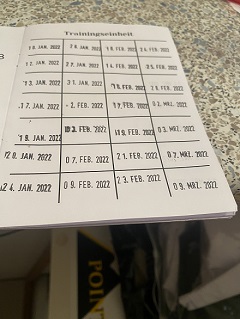 Trainingseinheit
10. JAN. 2022 28. JAN. 2022 10. FEB. 2022 24. FEB. 2022
12. JAN. 2022 27. JAN. 2022 14. FEB. 2022 25. FEB. 2022
13. JAN. 2022 31. JAN. 2022 15. FEB. 2022 28. FEB. 2022
17. JAN. 2022 -2. FEB. 2022 17. FEB. 2022 02. MRZ. 2022
19. JAN. 2022 FEB. 2022 18. FEB. 2022 03. MRZ. 2022
20. JAN. 2022 07. FEB. 2022 21. FEB. 2022 07. MRZ. 2022
24. JAN. 2022 09. FEB. 2022 23. FEB. 2022 09. MRZ. 2022
POINT